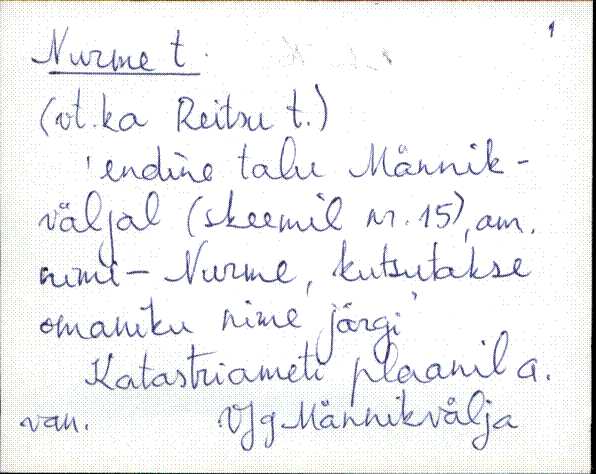 1
Nurme t.
(vt. ka Reitsu t.)
'endine talu Männik-
väljal (skeemil nr. 15), am.
nimi - Nurme, kutsutakse
omaniku nime järgi'
Katastriameti plaanil a.
van. VJg Männikvälja